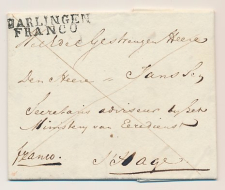 HARLINGEN
FRANCO
WelEdelGestrengen Heere
Den Heere Jansse,
Secretaris adviseur bij het
Ministerie van Eeredienst
franco.
's Hage